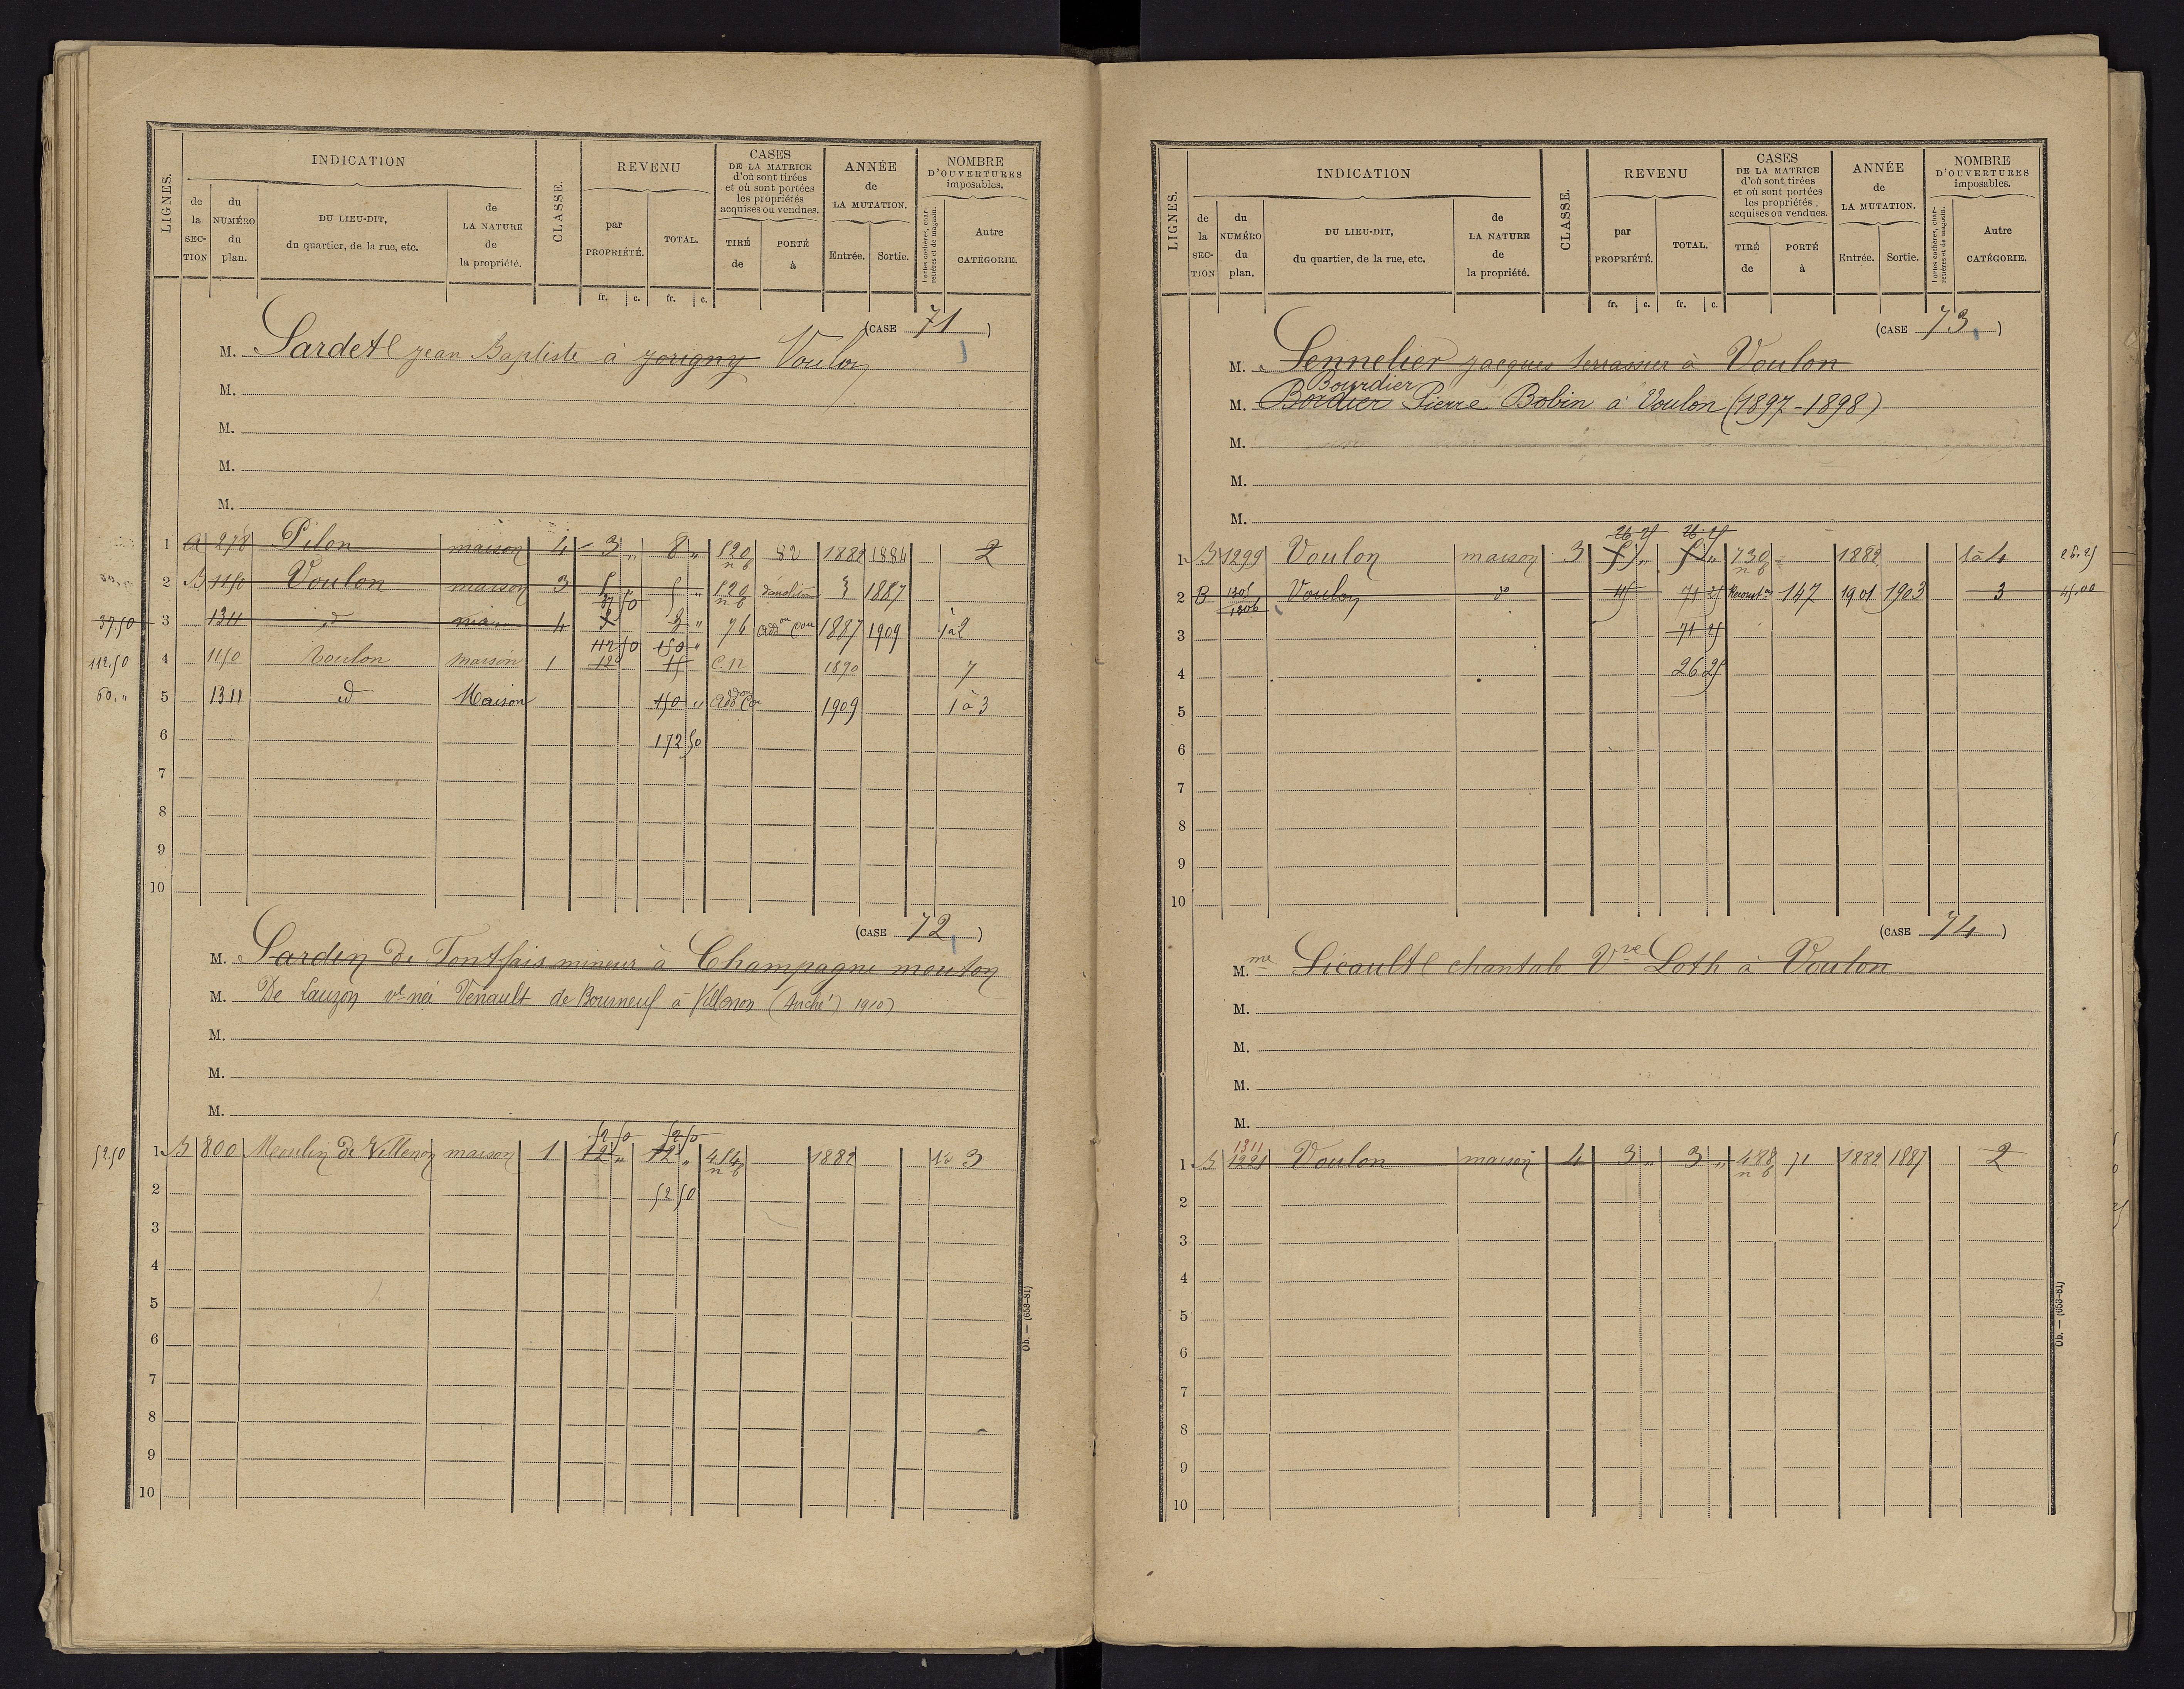 LIGNES. INDICATION CLASSE. REVENU CASES DE LA MATRICE d'où sont tirées et où sont portées les propriétés acquises ou vendues. ANNÉE de LA MUTATION. NOMBRE D'OUVERTURES imposables.
de la SECTION du NUMÉRO du plan. DU LIEU-DIT, du quartier, de la rue, etc. de LA NATURE de la propriété. par PROPRIÉTÉ. TOTAL. TIRÉ de PORTÉ à Entrée. Sortie. Portes cochères, charretières et de magasin. Autre CATÉGORIE.
fr. c. fr. c.
(CASE 71)
M. Sardet jean Baptiste à jorigny Voulon
M.
M.
M.
M.
1 A 278 Pilon maison 4 3 " 8 " 120 n b 82 1882 1884 2
2 B 1150 Voulon maison 3 5 " 5 " 120 n b démolition 1887
37.50 3 1311 d maison 4 37 50 3 3 " 74 addon Con 1887 1909 1 à 2
112.50 4 1150 Voulon maison 1 112 50 12 150 " 15 C. n 1890 7
60. " 5 1311 d Maison 150 " Addon Con 1909 1 à 3
6 172 50
7
8
9
10
(CASE 72)
M. Sardin de Fontfais mineur à Champagne mouton
M. De Lauzon ve née Venault de Bourneuf à Villenon (Anché) 1910)
M.
M.
M.
52.50 1 B 800 Moulin de Villenon maison 1 52 50 12 " 52 50 12 " 414 n b 1882 3
2 52 50
3
4
5
6
7
8
9
10
Ob. — (653-81)
LIGNES. INDICATION CLASSE. REVENU CASES DE LA MATRICE d'où sont tirées et où sont portées les propriétés acquises ou vendues. ANNÉE de LA MUTATION. NOMBRE D'OUVERTURES imposables.
de la SECTION du NUMÉRO du plan. DU LIEU-DIT, du quartier, de la rue, etc. de LA NATURE de la propriété. par PROPRIÉTÉ. TOTAL. TIRÉ de PORTÉ à Entrée. Sortie. Portes cochères, charretières et de magasin. Autre CATÉGORIE.
fr. c. fr. c.
(CASE 73)
M. Sennelier jacques terrassier à Voulon
Bourdier
M. Bordier Pierre Bobin à Voulon (1897-1898)
M.
M.
M.
26 25 26.25
1 B 1299 Voulon maison 3 5 " 5 " 730 n b 1882 4 26.25
2 B 1305 1306 Voulon do 45 71 25 Reconston 147 1901 1903 3 45.00
3 71 25
4 26 25
5
6
7
8
9
10
(CASE 74)
M.me Sicault chantale Vve Loth à Voulon
M.
M.
M.
M.
1311
1 B 1221 Voulon maison 4 3 " 3 " 488 n b 71 1882 1887 2
2
3
4
5
6
7
8
9
10
Ob. — (653-81)